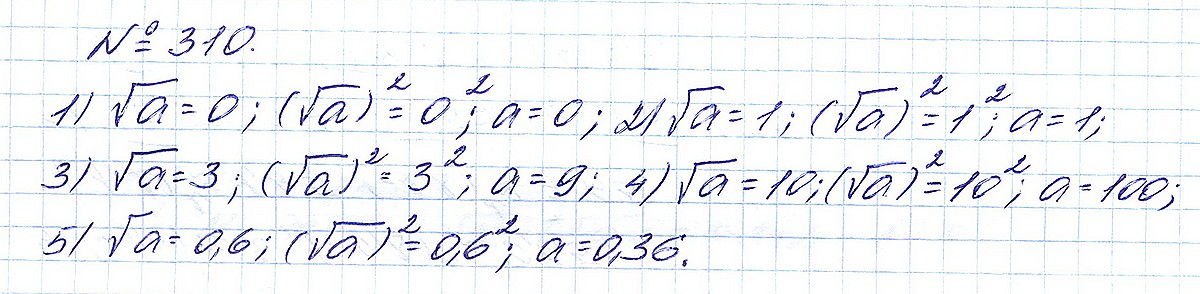 № 310.
1) √a = 0; (√a)² = 0²; a = 0; 2) √a = 1; (√a)² = 1²; a = 1;
3) √a = 3; (√a)² = 3²; a = 9; 4) √a = 10; (√a)² = 10²; a = 100;
5) √a = 0,6; (√a)² = 0,6²; a = 0,36.